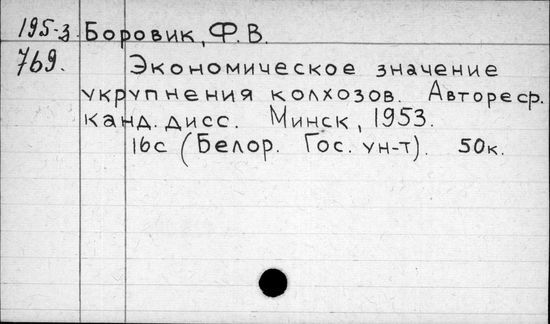 195-з Боровик, Ф. В.
769. Экономическое значение
укрупнения колхозов. Автореср.
канд. дисс. Минск, 1953.
16с (Белор. Гос. ун-т). 50к.